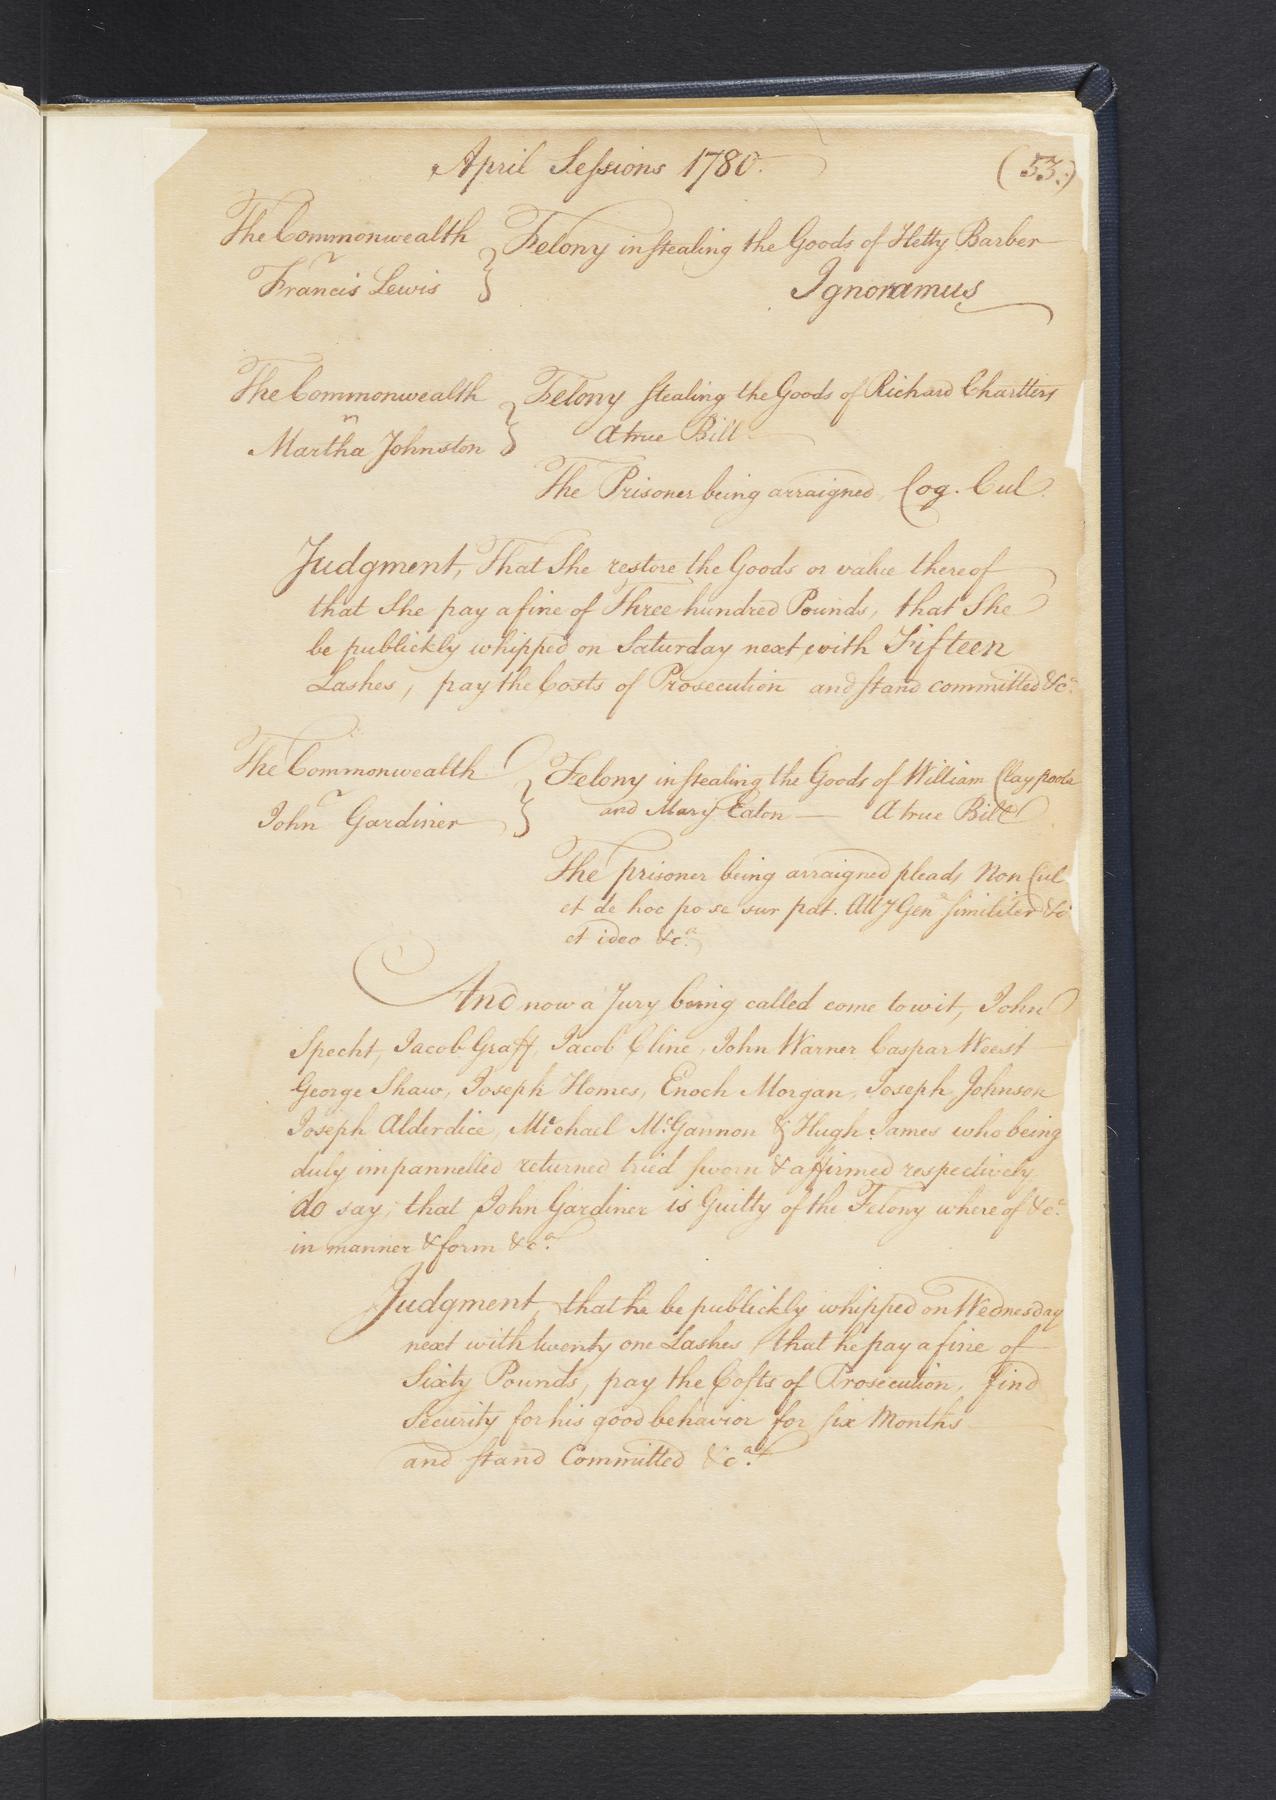 April Sessions 1780.
(53.)
The Commonwealth
v
Francis Lewis
Felony in stealing the Goods of Hetty Barber
Ignoramus
The Commonwealth
v
Martha Johnston
Felony stealing the Goods of Richard Chartters
A true Bill
The Prisoner being arraigned, Cog. Cul.
Judgment, That She restore the Goods or value thereof
that She pay a fine of Three hundred Pounds, that She
be publickly whipped on Saturday next, with Fifteen
Lashes, pay the Costs of Prosecution and stand committed &ca.
The Commonwealth
v
John Gardiner
Felony in stealing the Goods of William Claypoole
and Mary Eaton — A true Bill
The prisoner being arraigned pleads Non Cul
et de hoc po se sur pat. Atty Genl similiter &c
et ideo &ca.
And now a Jury being called come to wit, John
Specht, Jacob Graff, Jacob Cline, John Warner Caspar Weest
George Shaw, Joseph Homes, Enoch Morgan, Joseph Johnson
Joseph Alderdice, Michael McGannon & Hugh James who being
duly impannelled returned tried sworn & affirmed respectively
do say, that John Gardiner is Guilty of the Felony whereof &ca.
in manner & form &ca.
Judgment, that he be publickly whipped on Wednesday
next with twenty one Lashes, that he pay a fine of
Sixty Pounds, pay the Costs of Prosecution, find
Security for his good behavior for six Months
and stand Committed &ca.